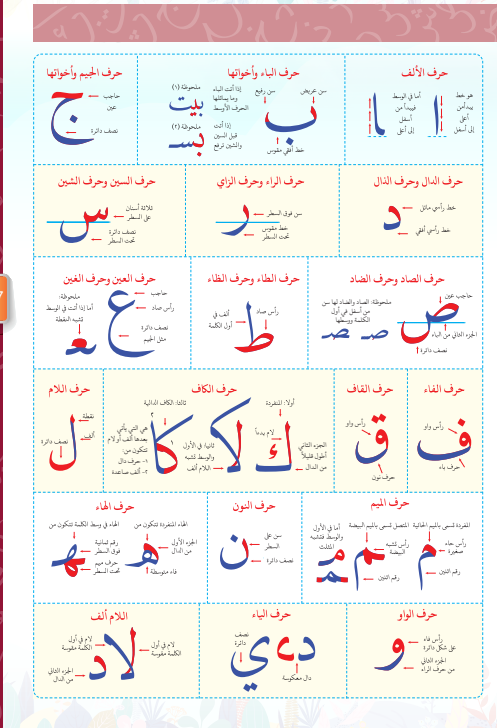 حرف الألف
هو خط
يبدأ من
أعلى
إلى أسفل
أما في الوسط
فيبدأ من
أسفل
إلى أعلى
ا
ـا
حرف الباء وأخواتها
سن عريض
سن رفيع
ب
خط أفقي مقوس
إذا أتت الباء
وما يماثلها
الحرف الأوسط
ملحوظة (١)
بيت
إذا أتت
قبل السين
والشين ترفع
ملحوظة (٢)
بسـ
حرف الجيم وأخواتها
حاجب
عين
نصف دائرة
ج
حرف الدال وحرف الذال
خط رأسي مائل
خط رأسي أفقي
د
حرف الراء وحرف الزاي
سن فوق السطر
خط مقوس
تحت السطر
ر
حرف السين وحرف الشين
ثلاثة أسنان
على السطر
نصف دائرة
تحت السطر
س
حرف الصاد وحرف الضاد
حاجب عين
الجزء الثاني من الباء
نصف دائرة
ص
ملحوظة: الصاد والضاد لها سن
من أسفل في أول
الكلمة ووسطها
صـ
ـصـ
حرف الطاء وحرف الظاء
رأس صاد
ألف في
أول الكلمة
ط
حرف العين وحرف الغين
حاجب
رأس صاد
نصف دائرة
مثل الجيم
ع
ملحوظة:
أما إذا أتت في الوسط
تشبه النقطة
ـعـ
حرف الفاء
رأس واو
حرف باء
ف
حرف القاف
رأس واو
حرف نون
ق
حرف الكاف
أولا: المنفردة
لام يدءاً
الجزء الثاني
أطول قليلاً
من الدال
ك
ثانيا: في الأول
والوسط تشبه
اللام ألف
ثالثا: الكاف الدالية
هي التي يأتي
بعدها ألف أو لام
تتكون من:
١- حرف دال
٢- ألف صاعدة
كا
حرف اللام
نقطة
ألف
نصف دائرة
ل
حرف الميم
المفردة تسمى بالميم الخالية
رأس حاء
صغيرة
رقم اثنين
م
المتصل تسمى بالميم البيضة
رأس تشبه
البيضة
رقم اثنين
أما في الأول
والوسط فتشبه
المثلث
حرف النون
سن على
السطر
نصف دائرة
ن
حرف الهاء
الهاء المنفردة تتكون من
الجزء الأول
من الدال
فاء متوسطة
الهاء في وسط الكلمة تتكون من
رقم ثمانية
فوق السطر
حرف ميم
تحت السطر
حرف الواو
رأس فاء
على شكل دائرة
الجزء الثاني
من حرف الراء
و
حرف الياء
نصف
دائرة
دال معكوسة
اللام ألف
لام في أول
الكلمة مقوسة
لام في أول
الكلمة مقوسة
الجزء الثاني
من الدال
لا